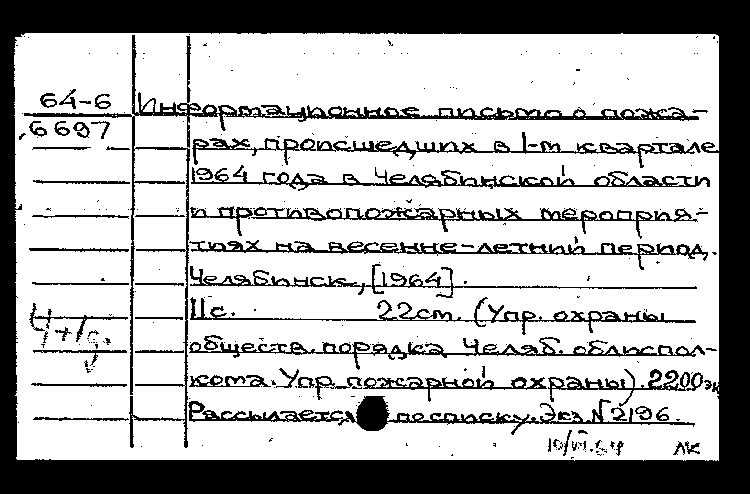 64-6 Информационное письмо о пожа-
6697
рах, происшедших в 1-м квартале
1964 года в Челябинской области
и противопожарных мероприя-
тиях на весенне-летний период.
Челябинск, [1964].
11с. 22см. (Упр. охраны
обществ. порядка Челяб. облиспол-
кома. Упр. пожарной охраны). 2200 эк
Рассылается по списку. Экз. № 2196.
4+1с.
10/VI.64 ЛК